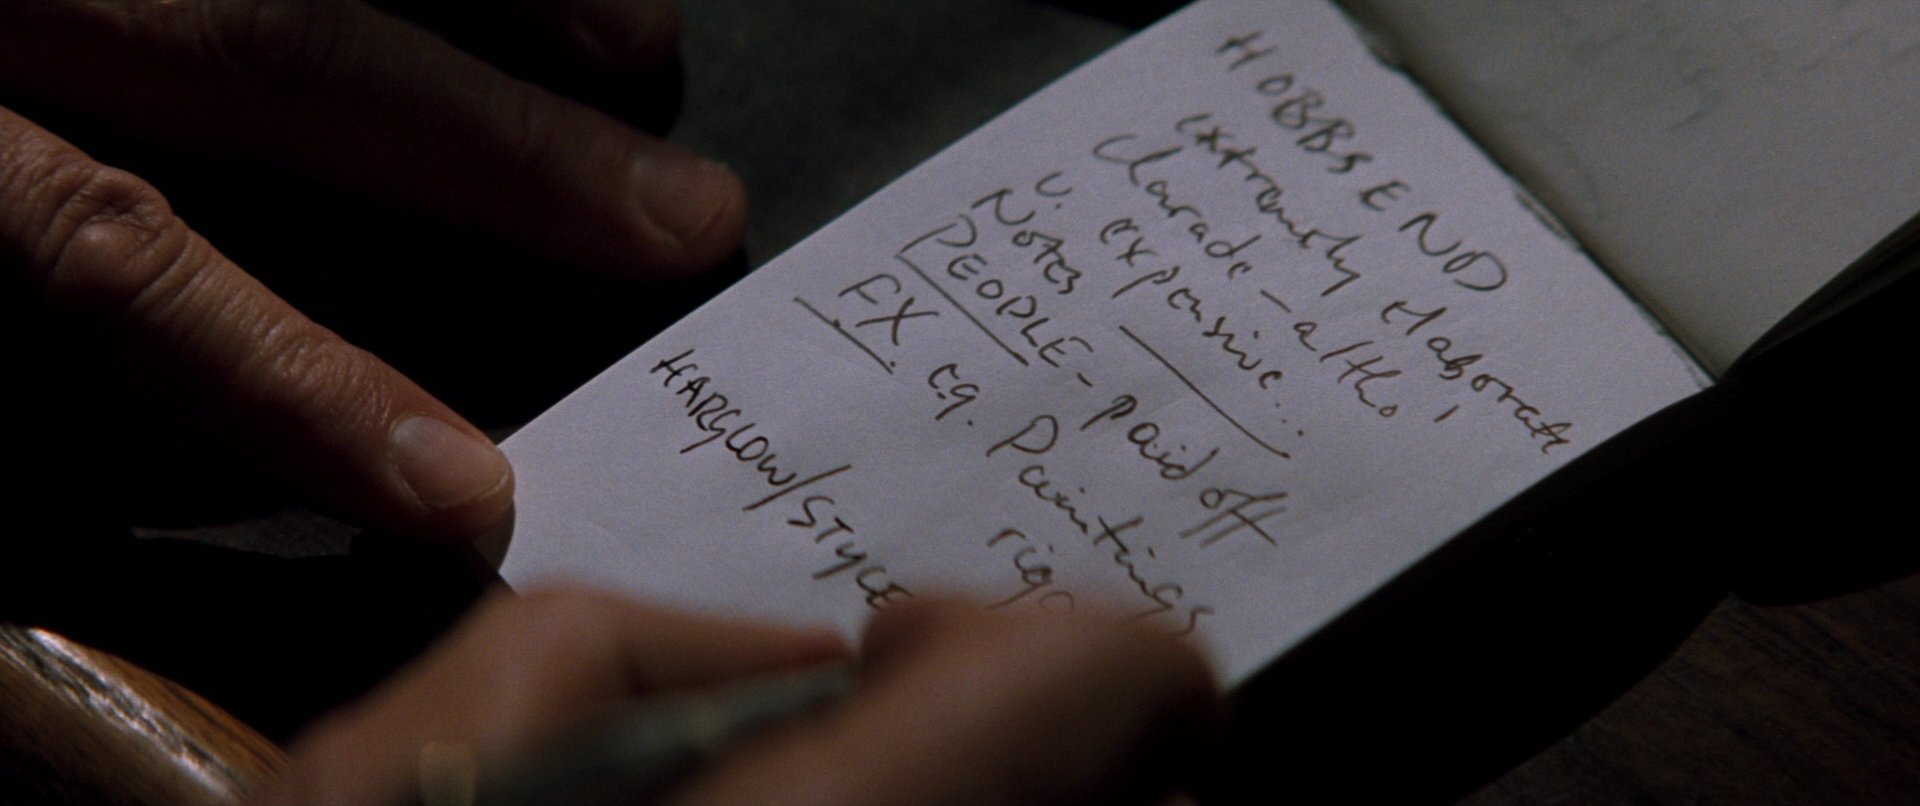 HOBBS END
extremely elaborate
charade - altho'
v. expensive...
Notes
PEOPLE - paid off
FX. eg. Paintings
HARGLOW/STYLE